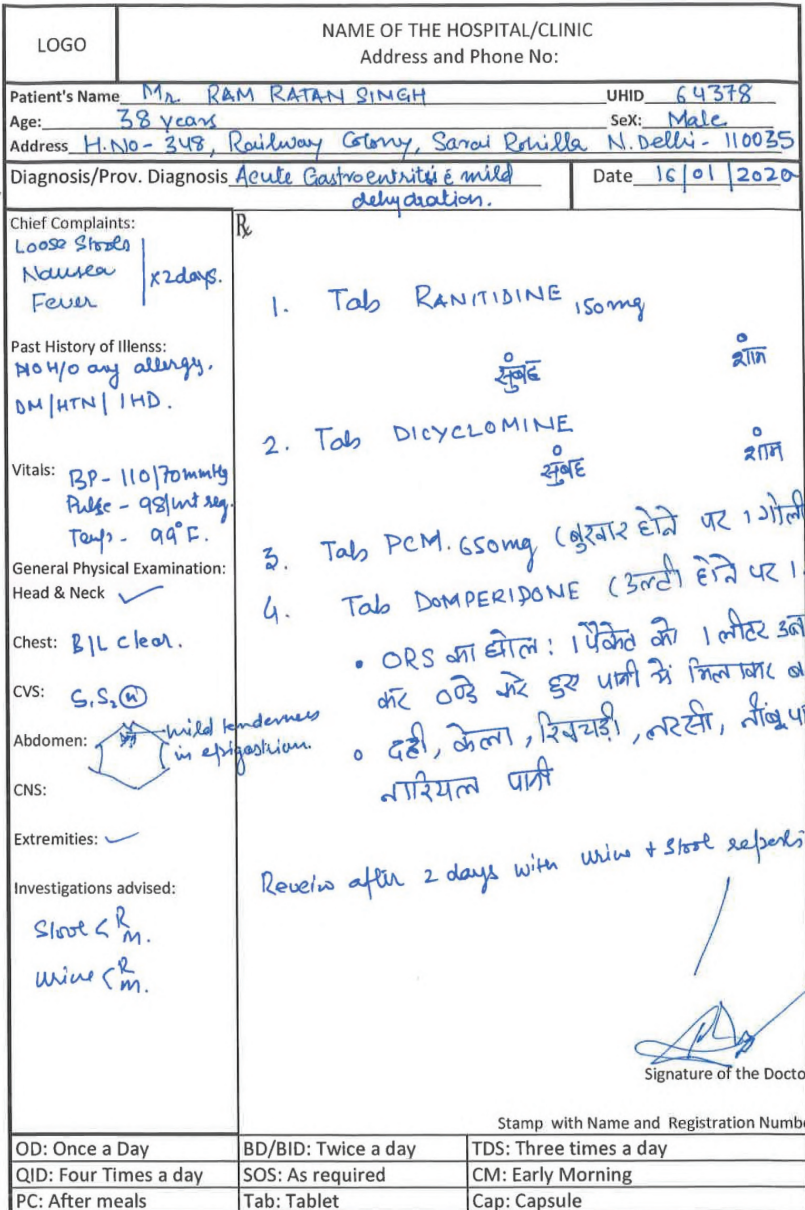 LOGO
NAME OF THE HOSPITAL/CLINIC
Address and Phone No:
Patient's Name Mr. RAM RATAN SINGH UHID 64378
Age: 38 years SeX: Male
Address H.NO- 348, Railway Colony, Sarai Rohilla N. Delhi- 110035
Diagnosis/Prov. Diagnosis Acute Gastroentritis c mild
dehydration.
Date 16/01/2020
Chief Complaints:
Loose Stools
Nausea x2days.
Fever
Past History of Illenss:
NO H/O any allergy.
DM/HTN/IHD.
Vitals: BP- 110/70mmHg
Pulse - 98/mt reg.
Temp- 99°F.
General Physical Examination:
Head & Neck
Chest: B/L Clear.
CVS: S1S2 (N)
Abdomen: mild tenderness
in epigastrium.
CNS:
Extremities:
Investigations advised:
Stool < R
M.
Urine < R
M.
Rx
1. Tab RANITIDINE 150mg
सुबह शाम
2. Tab DICYCLOMINE
सुबह शाम
3. Tab PCM. 650mg (बुखार होने पर 1 गोली
4. Tab DOMPERIDONE (उल्टी होने पर 1
• ORS का घोल: 1 पैकेट को 1 लीटर उब
कर ठण्डे करे हुए पानी में मिलाकर
• दही, केला, खिचड़ी, लस्सी, नींबू पा
नारियल पानी
Review after 2 days with urine + Stool reports
Signature of the Docto
Stamp with Name and Registration Numbe
OD: Once a Day BD/BID: Twice a day TDS: Three times a day
QID: Four Times a day SOS: As required CM: Early Morning
PC: After meals Tab: Tablet Cap: Capsule